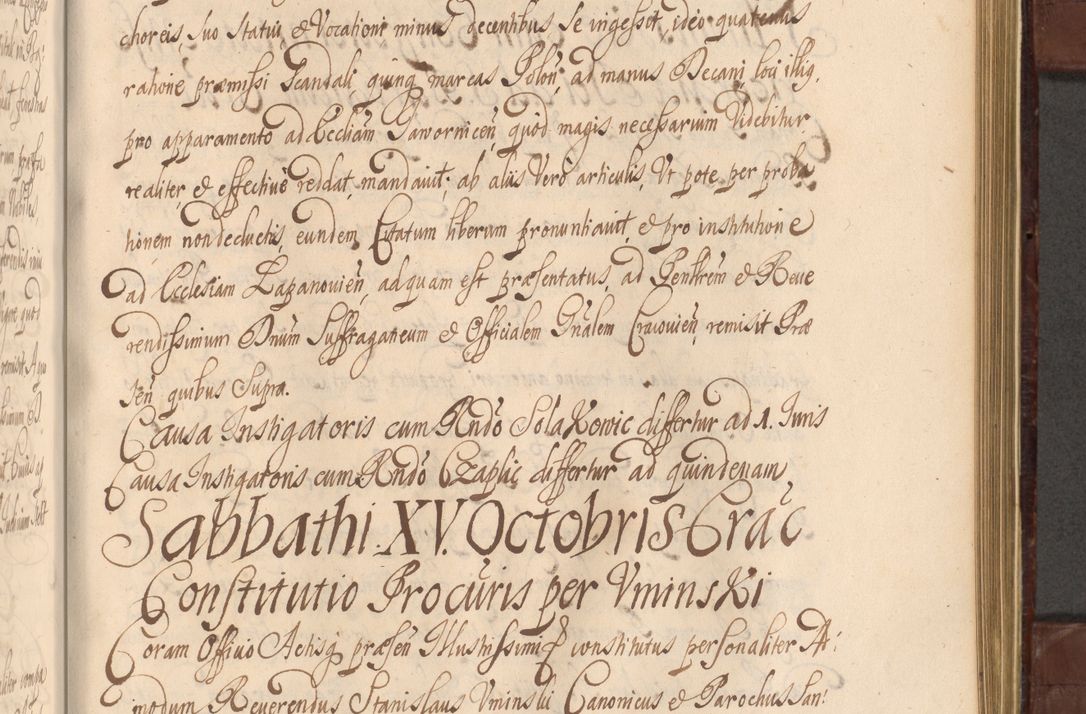 choreis, suo statui, & Vocationi minus decentibus se ingessit, ideo quatenus
ratione præmissi Scandali, quinq marcas Polon; ad manus Decani loci illig.
pro apparamento ad Eccliam Jawornicen, quod magis necessarium Videbitur,
realiter, & effective reddat, mandavit; ab aliis Vero articulis, Ut pote per proba
tionem non deductis, eundem Citatum liberum pronuntiavit, & pro institutione
ad Ecclesiam Lapanovien, ad quam est præsentatus, ad Perillrem & Reve
rendissimum Dnum Suffraganeum & Officialem Gnalem Cracovien, remisit Præ
sen quibus Supra.
Causa Instigatoris cum Rndo Sola Kowic differtur ad 1. Iuris
Causa Instigatoris cum Rndo Czaplic differtur ad quindenam,
Sabbathi XV. Octobris Crac
Constitutio Procuris per Uminski
Coram Officio Actisq præsen Illustrissimi & constitutus personaliter A:
modum Reverendus Stanislaus Uminski Canonicus & Parochus San: